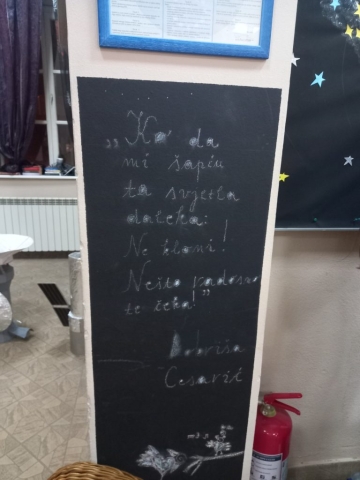 „Ko' da
mi šapću
ta svjetla
daleka:
Ne kloni!
Nešto radosno
te čeka!”
Dobriša
Cesarić